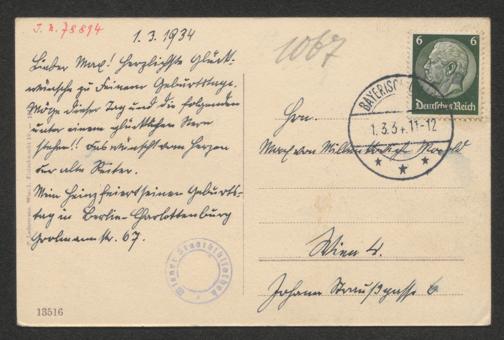 I.N. 78894
1.3.1934
Lieber Max! Herzlichste Glück-
wünsche zu Deinem Geburtstage.
Möge dieser Tag und die folgenden
unter einem glücklichen Stern
stehen!! Das wünscht vom Herzen
Mein Heinz feiert seinen Geburts-
tag in Berlin-Charlottenburg
Grolmannstr. 67.
Wiener Stadtbibliothek
13516
1067
6 6
Deutsches Reich
BAYERISCH
1.3.34.11-12
Hrn.
Max von
Wien 4.
Johann Straußgasse 6